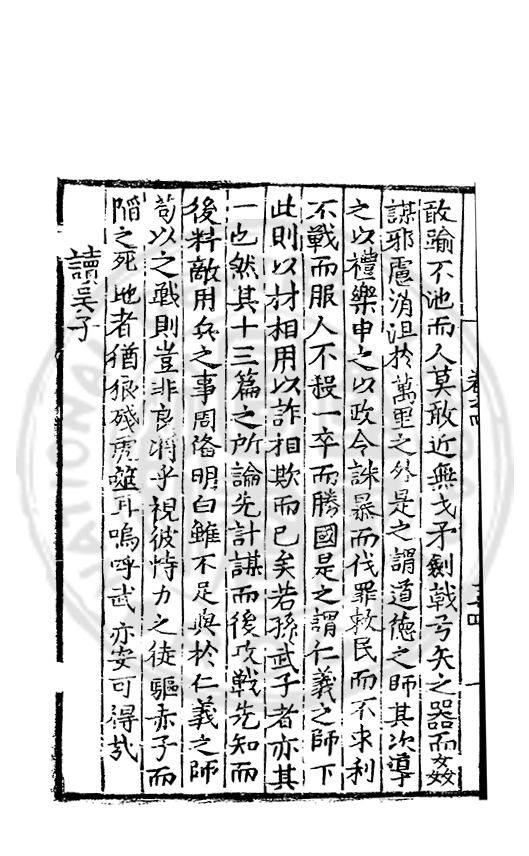 敢踰不池而人莫敢近無戈矛劍戟弓矢之器而姦
謀邪慮消沮於萬里之外是之謂道德之師其次導
之以禮樂申之以政令誅暴而伐罪救民而不求利
不戰而服人不殺一卒而勝國是之謂仁義之師下
此則以材相用以詐相欺而已矣若孫武子者亦其
一也然其十三篇之所論先計謀而後攻戰先知而
後料敵用兵之事周俻明白雖不足與於仁義之師
苟以之戰則豈非良將乎視彼恃力之徒驅赤子而
陷之死地者猶狼殘虎噬耳嗚呼武亦安可得㢤
讀吳子